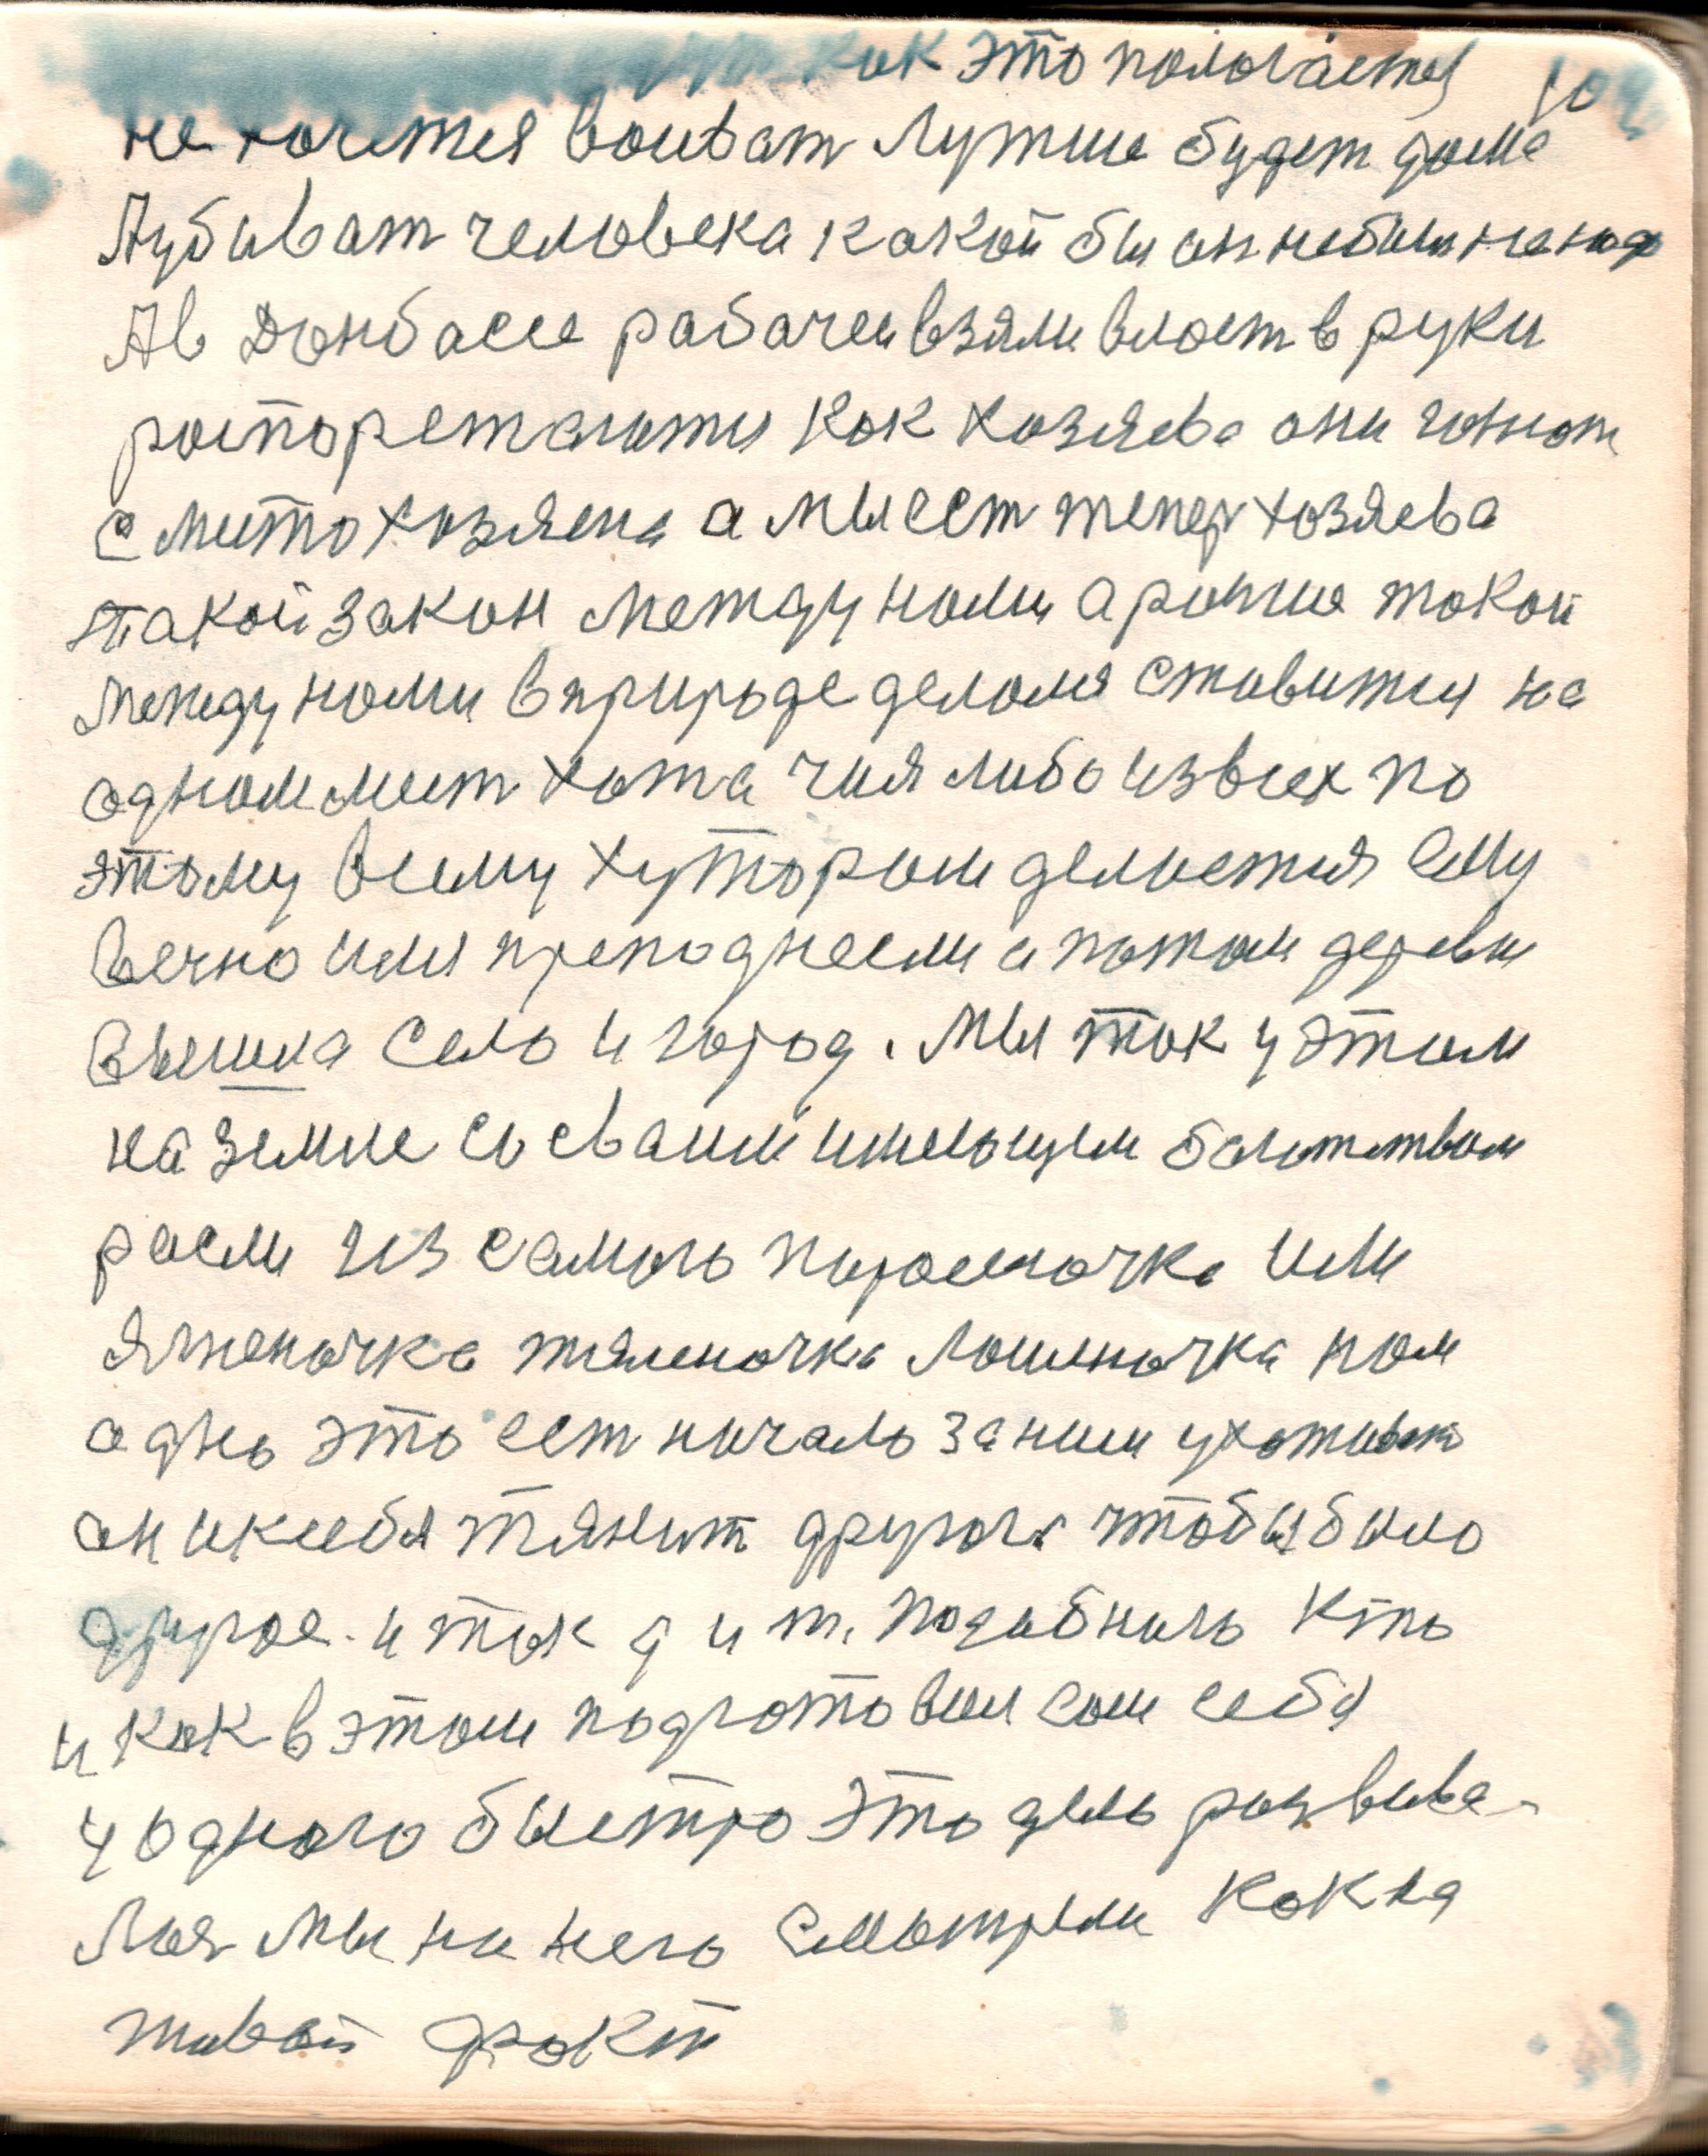 как это пологается
не хочется воиват Лутше будет дома
Аубиват человека какой бы он небыл ненадо
Ав Донбассе рабочеи взяли власт в руки
роспорежаютя как хозяева они гонют
с места хозяена а мы ест тепер хозяева
такой закон между нами а ранше такой
между нами в природе делался ставится на
одном мест хата чия либо из всех по
этому всему хутором делаетися ему
вечно имя преподнесли а потом деревн
вышла село и город. Мы так у этом
на земле со сваим имеющем богатством
расли из самого
Ягненочка теленочка Лошоночка нам
одно это ест начало за ним ухаживат
он иксебя тянит другога чтобы было
другое. и так д и т. подобного кто
и как в этом подготовил сам себя
у одного быстро это дело развива-
Лоя мы на него смотрели какна
живой факт